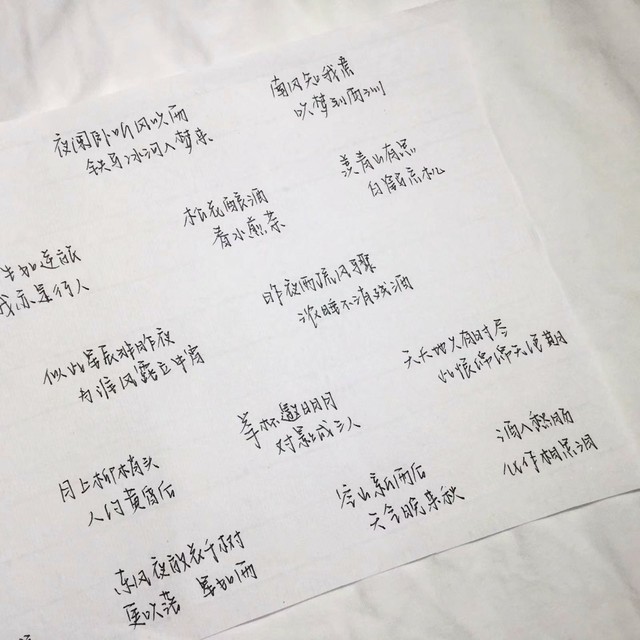 夜阑卧听风吹雨
铁马冰河入梦来
南风知我意
吹梦到西洲
松花酿酒
春水煎茶
羡青山有思
白鹤忘机
生如逆旅
我亦是行人
昨夜雨疏风骤
浓睡不消残酒
似此星辰非昨夜
为谁风露立中宵
天长地久有时尽
此恨绵绵无绝期
举杯邀明月
对影成三人
月上柳梢头
人约黄昏后
空山新雨后
天气晚来秋
酒入愁肠
化作相思泪
东风夜放花千树
更吹落 星如雨